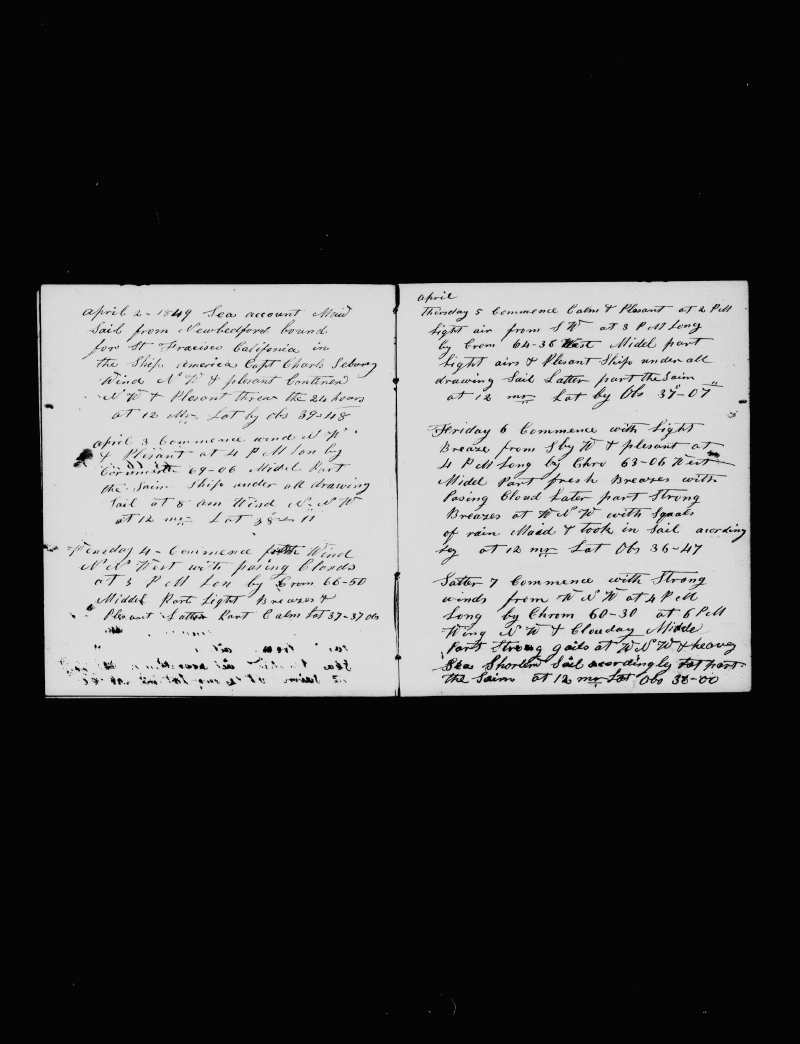 April 2 - 1849 Sea account Maid
Sail from Newbedford bound
for St Fracisco California in
the Ship America Capt Charls Sebury
Wind N W & plesant Contered
N W & Plesant threw the 24 hours
at 12 Mr Lat by obs 39-48
april 3 Commence wind N W
& Plesant at 4 P M Lon by
69-06 Midel Part
the Saim Ship under all drawing
Sail at 8 am Wind N N W
at 12 mr Lat 38-11
4 - Commence Wind
N N West with pasing Clouds
at 3 P M Lon by Crom 66-50
Middel Part Light Breazes &
Plesant Latter Part Calm Lat 37-37 obs
april
Thirsday 5 Commence Calm & Plesant at 2 P M
Light air from S W at 3 P M Long
by Crom 64-36 West Midel part
Light airs & Plesant Ship under all
drawing Sail Latter part the Saim
at 12 mr Lat by Obs 37-07
Friday 6 Commence with Light
Breaze from S by W & plesant at
4 P M Long by Chro 63-06 West
Midel Part fresh Breazes with
Pasing Cloud Later part Strong
Breazes at W N W with Sqaals
of rain Maid & took in Sail acording
ley at 12 mr Lat Obs 36-47
Satter 7 Commence with Strong
winds from W N W at 4 P M
Long by Chrom 60-30 at 6 P M
Wing N W & Clouday Midde
Part Strong gails at W N W & heavey
Sea Shorten Sail acordingley Lat part
the Saim at 12 mr Lat Obs 36-00